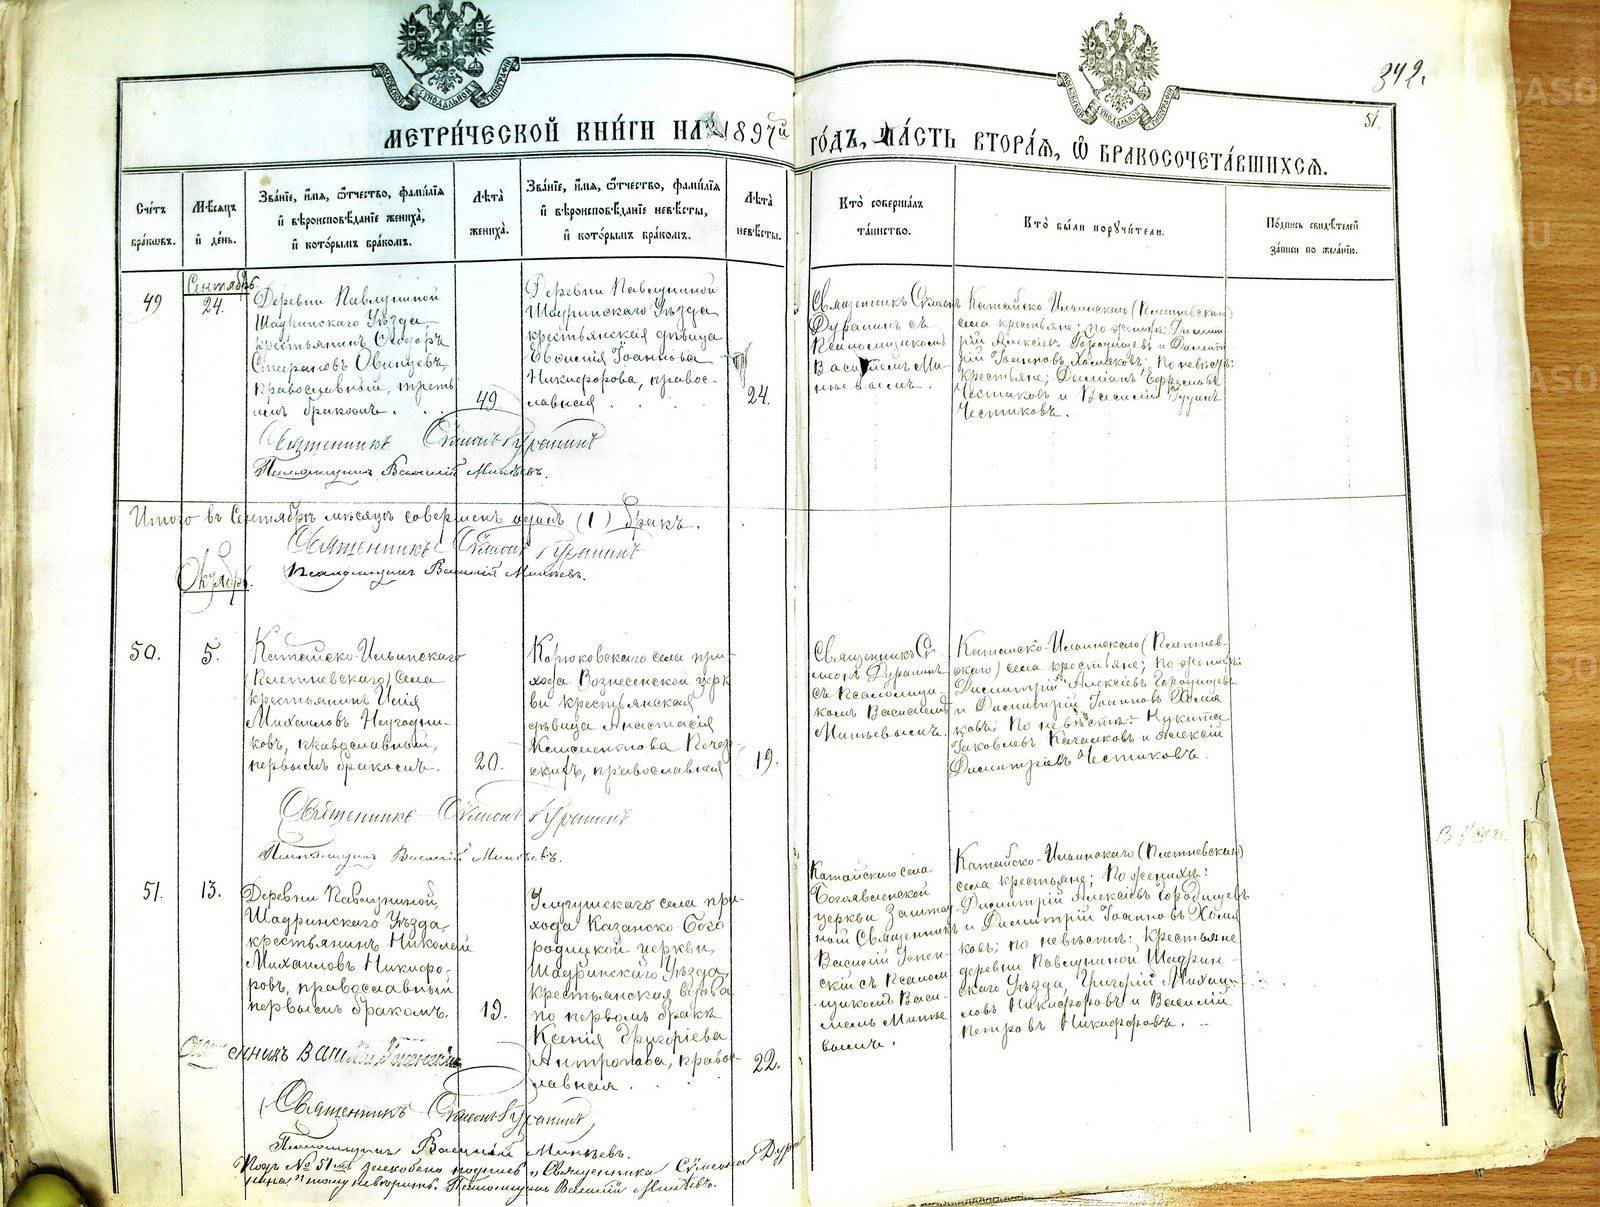 МОСКОВСКОЙ СУНОДАЛЬНОЙ ТИПОГРАФІИ
МОСКОВСКОЙ СУНОДАЛЬНОЙ ТИПОГРАФІИ
342.
51.
МЕТРИ́ЧЕСКОЙ КНИ́ГИ НА 1897й ГО́ДЪ, ЧА́СТЬ ВТОРА́Я, Ѽ БРАКОСОЧЕТА́ВШИХСЯ.
Сче́тъ бра́ковъ.
Мѣ́сяцъ и҆ де́нь.
Зва́нїе, и҆́мя, ѻ҆́тчество, фами́лїя
и҆ вѣроисповѣ́данїе жениха̀,
и҆ кото́рымъ бра́комъ.
Лѣ́та жениха̀.
Зва́нїе, и҆́мя, ѻ҆́тчество, фами́лїя
и҆ вѣроисповѣ́данїе невѣ́сты,
и҆ кото́рымъ бра́комъ.
Лѣ́та невѣ́сты.
Кто̀ соверша́лъ
та́инство.
Кто̀ бы́ли порꙋчи́тели.
По́дпись свидѣ́телей
за́писи по жела́нїю.
49
Сентябрь
24.
Деревни Павлуниной
Шадринскаго Уѣзда,
крестьянинъ Ѳеодоръ
Стефановъ Овинцевъ,
православный, треть
имъ бракомъ.
49
Деревни Павлуниной
Шадринскаго Уѣзда
крестьянская дѣвица
Евѳимія Іоаннова
Никифорова, правос-
лавная
24.
Священникъ Сѵмеонъ
Дурагинъ съ
Псаломщикомъ
Василіемъ Ми-
нѣевымъ.
Катайско-Ильинскаго (Плетневскаго)
села крестьяне; по женихѣ: Димит
рій Алексѣевъ Городищевъ и Димит
рій Іоанновъ Хомяковъ; по невѣстѣ:
крестьяне; Даміанъ
Честиковъ и Василій
Честиковъ.
Священникъ Сѵмеонъ
Псаломщикъ Василій Минѣевъ.
Итого въ Сентябрѣ мѣсяцѣ совершенъ одинъ (1) бракъ.
Священникъ Сѵмеонъ
Псаломщикъ Василій Минѣевъ.
Октябрь.
50.
5.
Катайско-Ильинскаго
(Плетневскаго) села
крестьянинъ Илія
Михаиловъ Неугодни-
ковъ, православный,
первымъ бракомъ.
20.
Корюковскаго села при-
хода Вознесенской церк
ви крестьянская
дѣвица Анастасія
Климентова Печер-
скихъ, православная
19.
Священникъ Сѵ
меонъ
съ Псаломщи-
комъ Василіемъ
Минѣевымъ.
Катайско-Ильинскаго (Плетнев-
скаго) села крестьяне; по женихѣ:
Димитрій Алексѣевъ Городищевъ
и Димитрій Іоанновъ Хомя
ковъ; по невѣстѣ: Никита
Іаковлевъ Качалковъ и Алексій
Димитріевъ Честиковъ.
Священникъ Сѵмеонъ
Псаломщикъ Василій Минѣевъ.
51.
13.
Деревни Павлуниной,
Шадринскаго Уѣзда,
крестьянинъ Николай
Михаиловъ Никифо-
ровъ, православный
первымъ бракомъ.
19.
Улугушскаго села при-
хода Казанско-Бого
родицкой церкви,
Шадринскаго Уѣзда,
крестьянская вдова
по первомъ бракѣ
Ксенія Григоріева
Антропова, правос-
лавная.
22.
Катайскаго села
Богоявленской
церкви Заштат
ный Священникъ
Василій Успен-
скій съ Псалом-
щикомъ Васи-
ліемъ Минѣе
вымъ.
Катайско-Ильинскаго (Плетневскаго)
села крестьяне; по женихѣ:
Димитрій Алексѣевъ Городищевъ
и Димитрій Іоанновъ Хомя
ковъ; по невѣстѣ: крестьяне
деревни Павлуниной Шадрин-
скаго Уѣзда, Григорій Михаи-
ловъ Никифоровъ и Василій
Петровъ Никифоровъ.
Священникъ Василій Успенскій
Священникъ Сѵмеонъ
Псаломщикъ Василій Минѣевъ.
Подъ № 51мъ
Псаломщикъ Василій Минѣевъ.